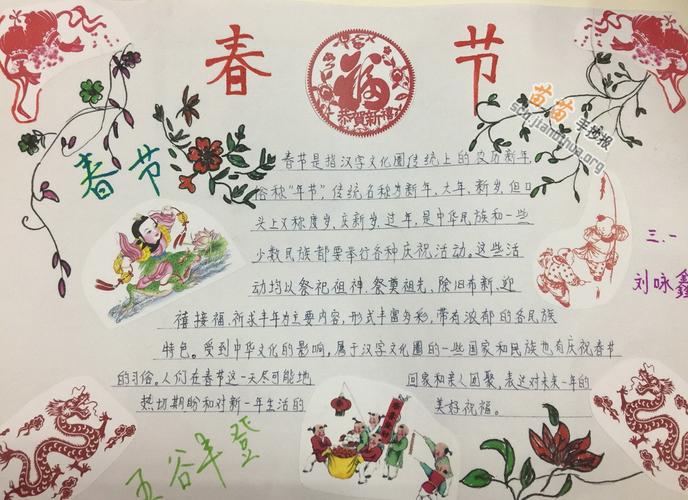 春 节
恭贺新禧
苗苗手抄报
scq.jiandihua.org
春节
春节是指汉字文化圈传统上的农历新年,
俗称“年节”,传统名称为新年、大年、新岁,但口
头上又称度岁、庆新岁、过年,是中华民族和一些
少数民族都要举行各种庆祝活动。这些活
动均以祭祀祖神、祭奠祖先、除旧布新、迎
禧接福、祈求丰年为主要内容,形式丰富多彩,带有浓郁的各民族
特色。受到中华文化的影响,属于汉字文化圈的一些国家和民族也有庆祝春节
的习俗。人们在春节这一天尽可能地 回家和亲人团聚,表达对未来一年的
热切期盼和对新一年生活的 美好祝福。
三.一
刘咏鑫
五谷丰登